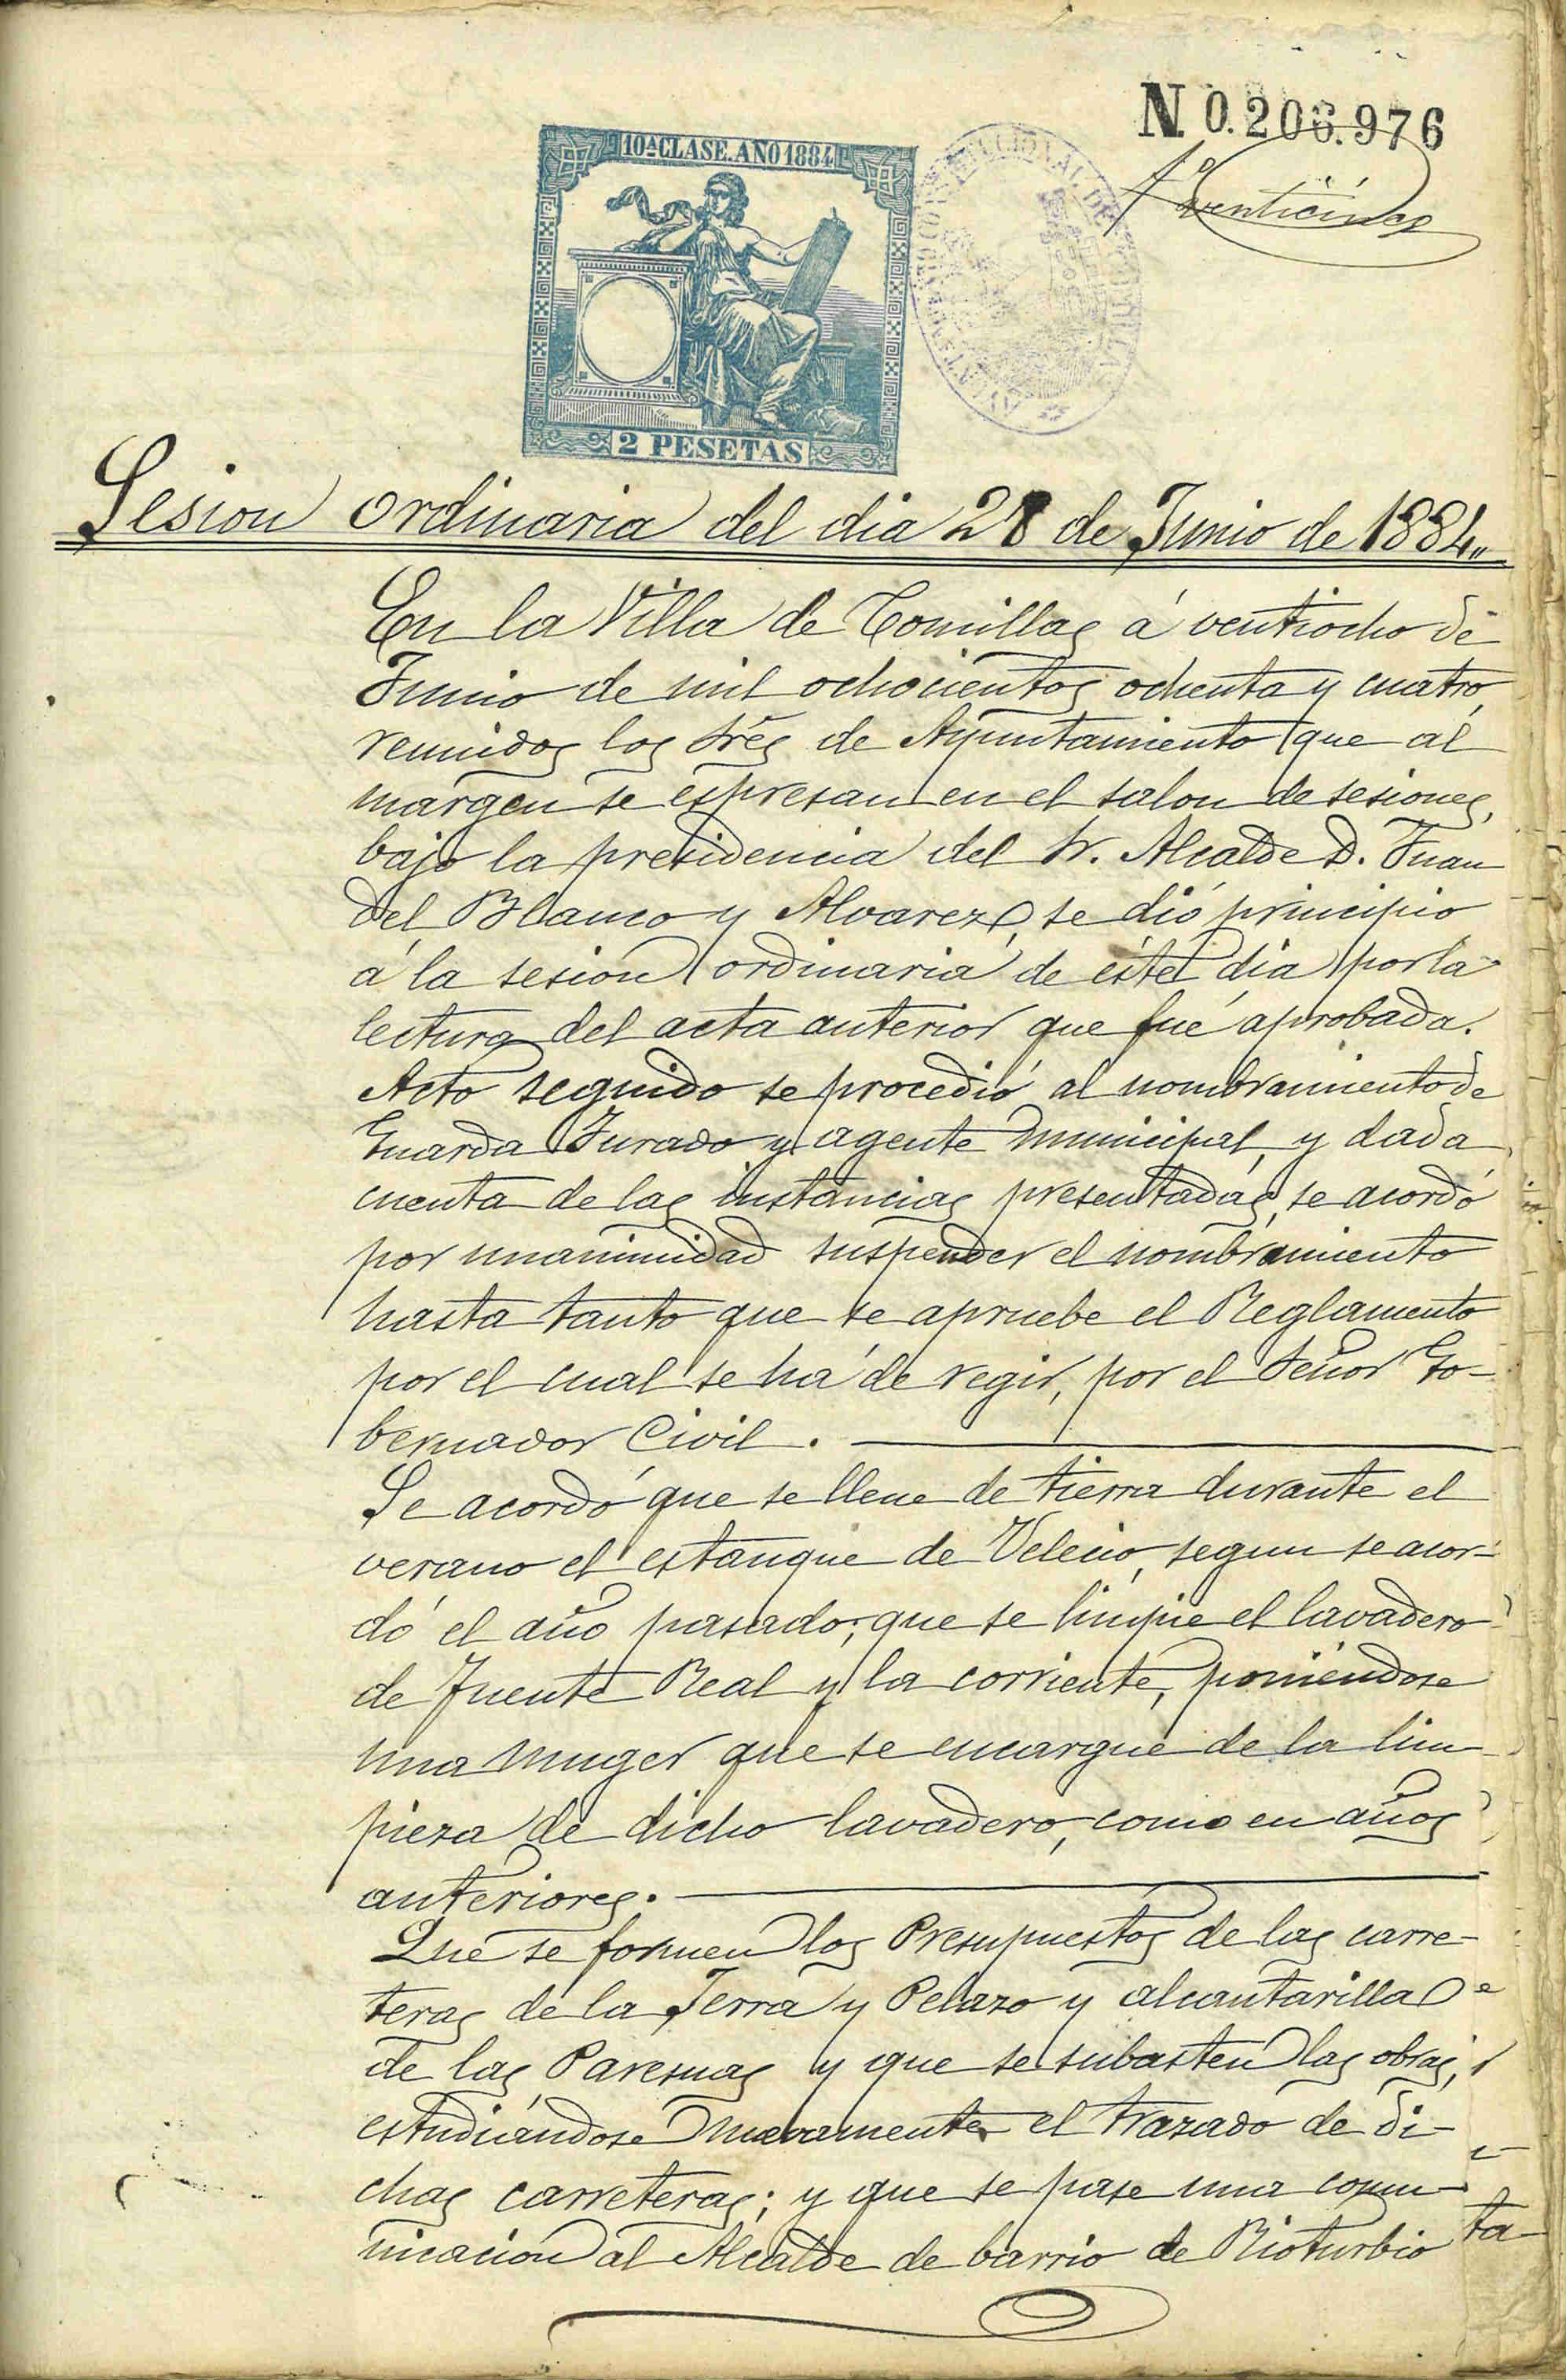 N 0.206.976
fº venticinco
10ª CLASE. AÑO 1884
2 PESETAS
Sesion ordinaria del dia 28 de Junio de 1884.,,
En la Villa de Comillas á ventiocho de
Junio de mil ochocientos ochenta y cuatro,
reunidos los Sres de Ayuntamiento que al
margen se espresan en el salon de sesiones,
bajo la presidencia del Sr. Alcalde D. Juan
del Blanco y Alvarez, se dió principio
á la sesion ordinaria de éste dia por la
lectura del acta anterior que fué aprobada.
Acto seguido se procedió al nombramiento de
Guarda Jurado y agente municipal, y dada
cuenta de las instancias presentadas, se acordó
por unanimidad suspender el nombramiento
hasta tanto que se apruebe el Reglamento
por el cual se ha de regir, por el Señor Go-
bernador Civil.
Se acordó que se llene de tierra durante el
verano el estanque de Velecio, segun se acor-
dó el año pasado; que se limpie el lavadero
de Fuente Real y la corriente, poniéndose
una muger que se encargue de la lim-
pieza de dicho lavadero, como en años
anteriores.
Que se formen los Presupuestos de las carre-
teras de la Serra y Pelazo y alcantarilla
de las Paresmas y que se subasten las obras,
estudiándose nuevamente el trazado de di-
chas carreteras; y que se pase una comu-
nicacion al Alcalde de barrio de Rioturbio
ta-